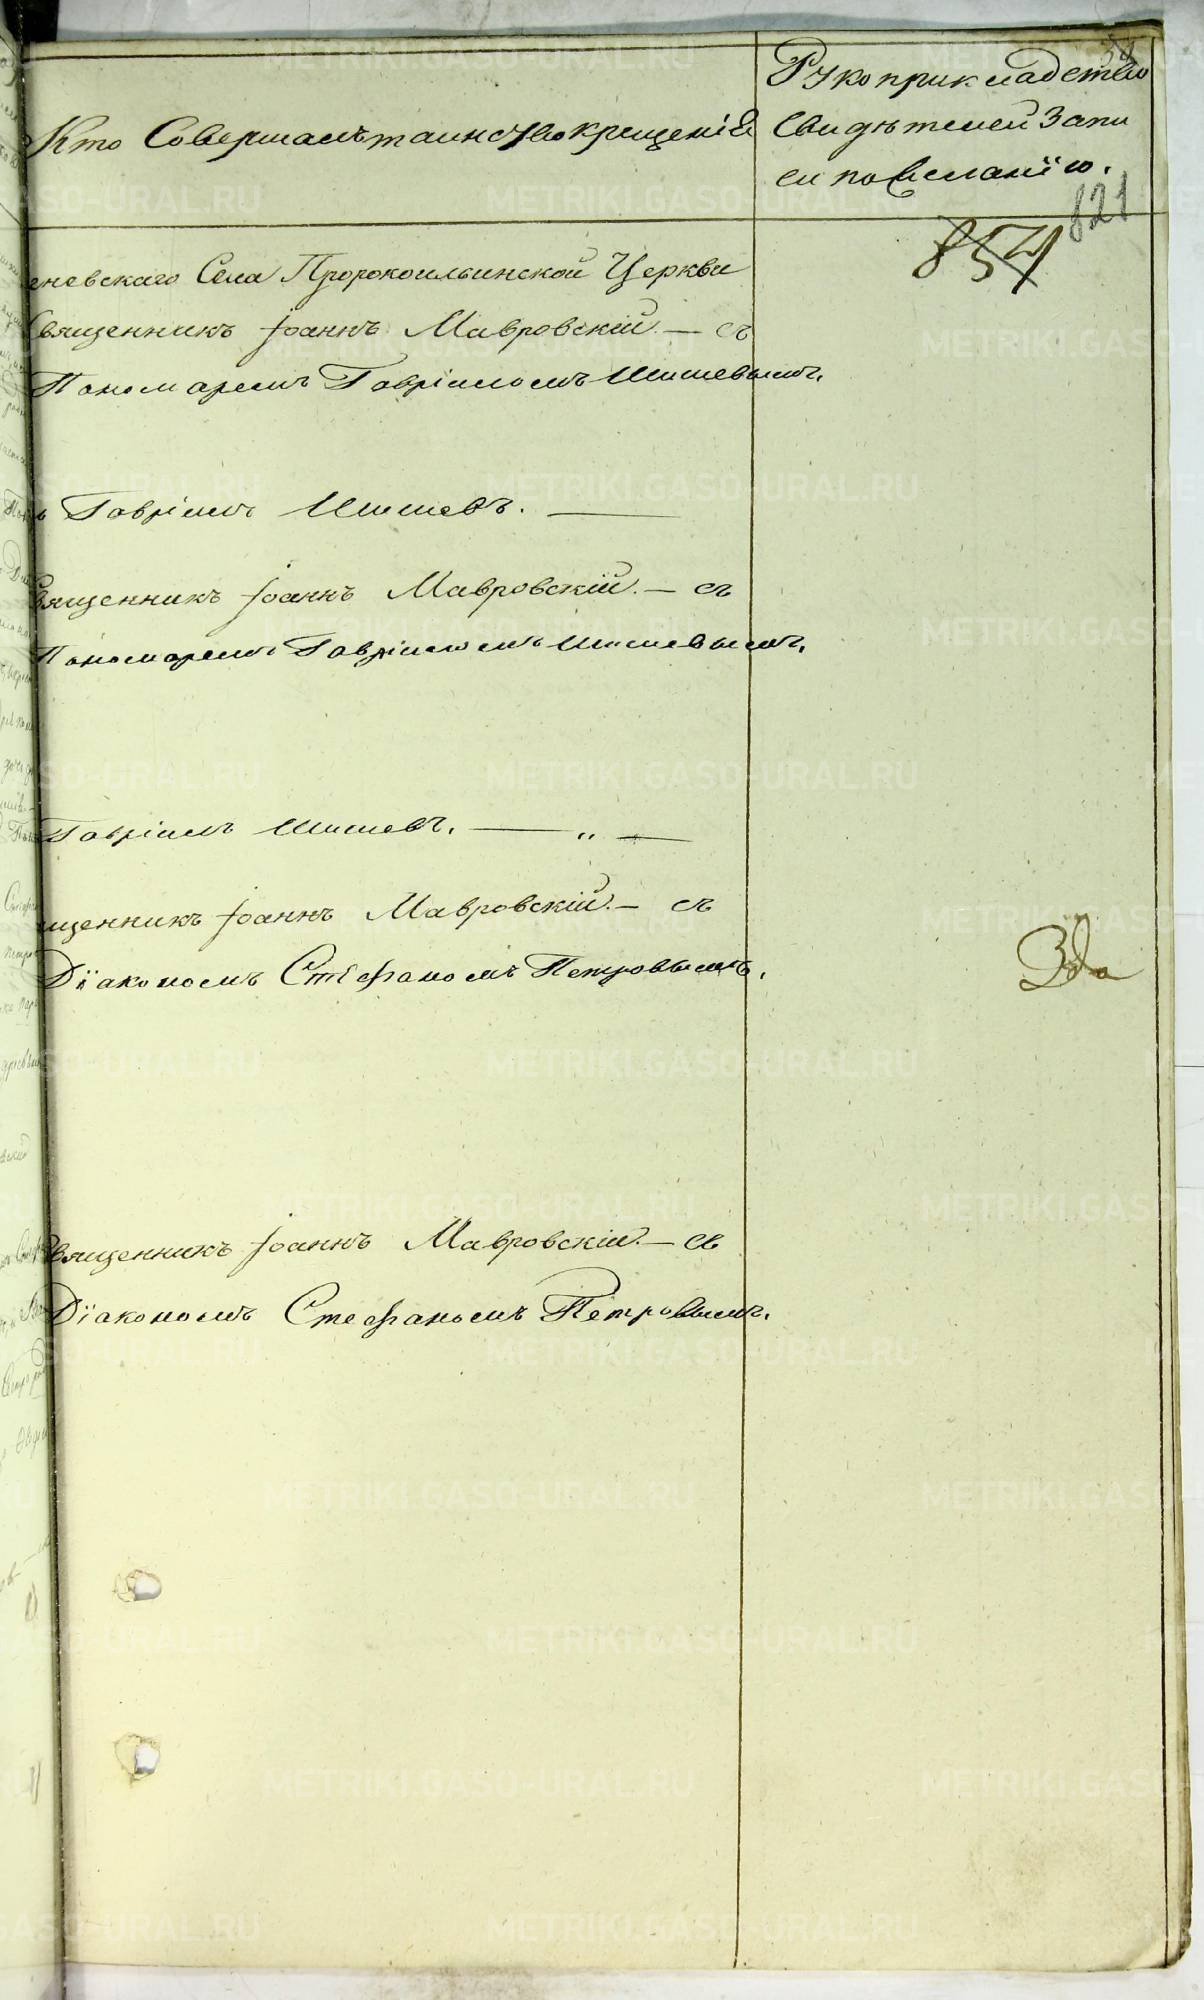 Кто Совершалъ таинство крещенія
Рукоприкладство
Свидѣтелей Запи
си по Желанію.
821
854
еневскаго Села Пророкоильинской Церкви
Священникъ Іоаннъ Мавровскій. — съ
Пономаремъ Гавріиломъ Шишевымъ.
Гавріилъ Шишевъ. —
Священникъ Іоаннъ Мавровскій. — съ
Пономаремъ Гавріиломъ Шишевымъ.
Гавріилъ Шишевъ. — „ —
щенникъ Іоаннъ Мавровскій. — съ
Діакономъ Стефаномъ Петровымъ.
Священникъ Іоаннъ Мавровскій. — съ
Діакономъ Стефаномъ Петровымъ.
METRIKI.GASO-URAL.RU